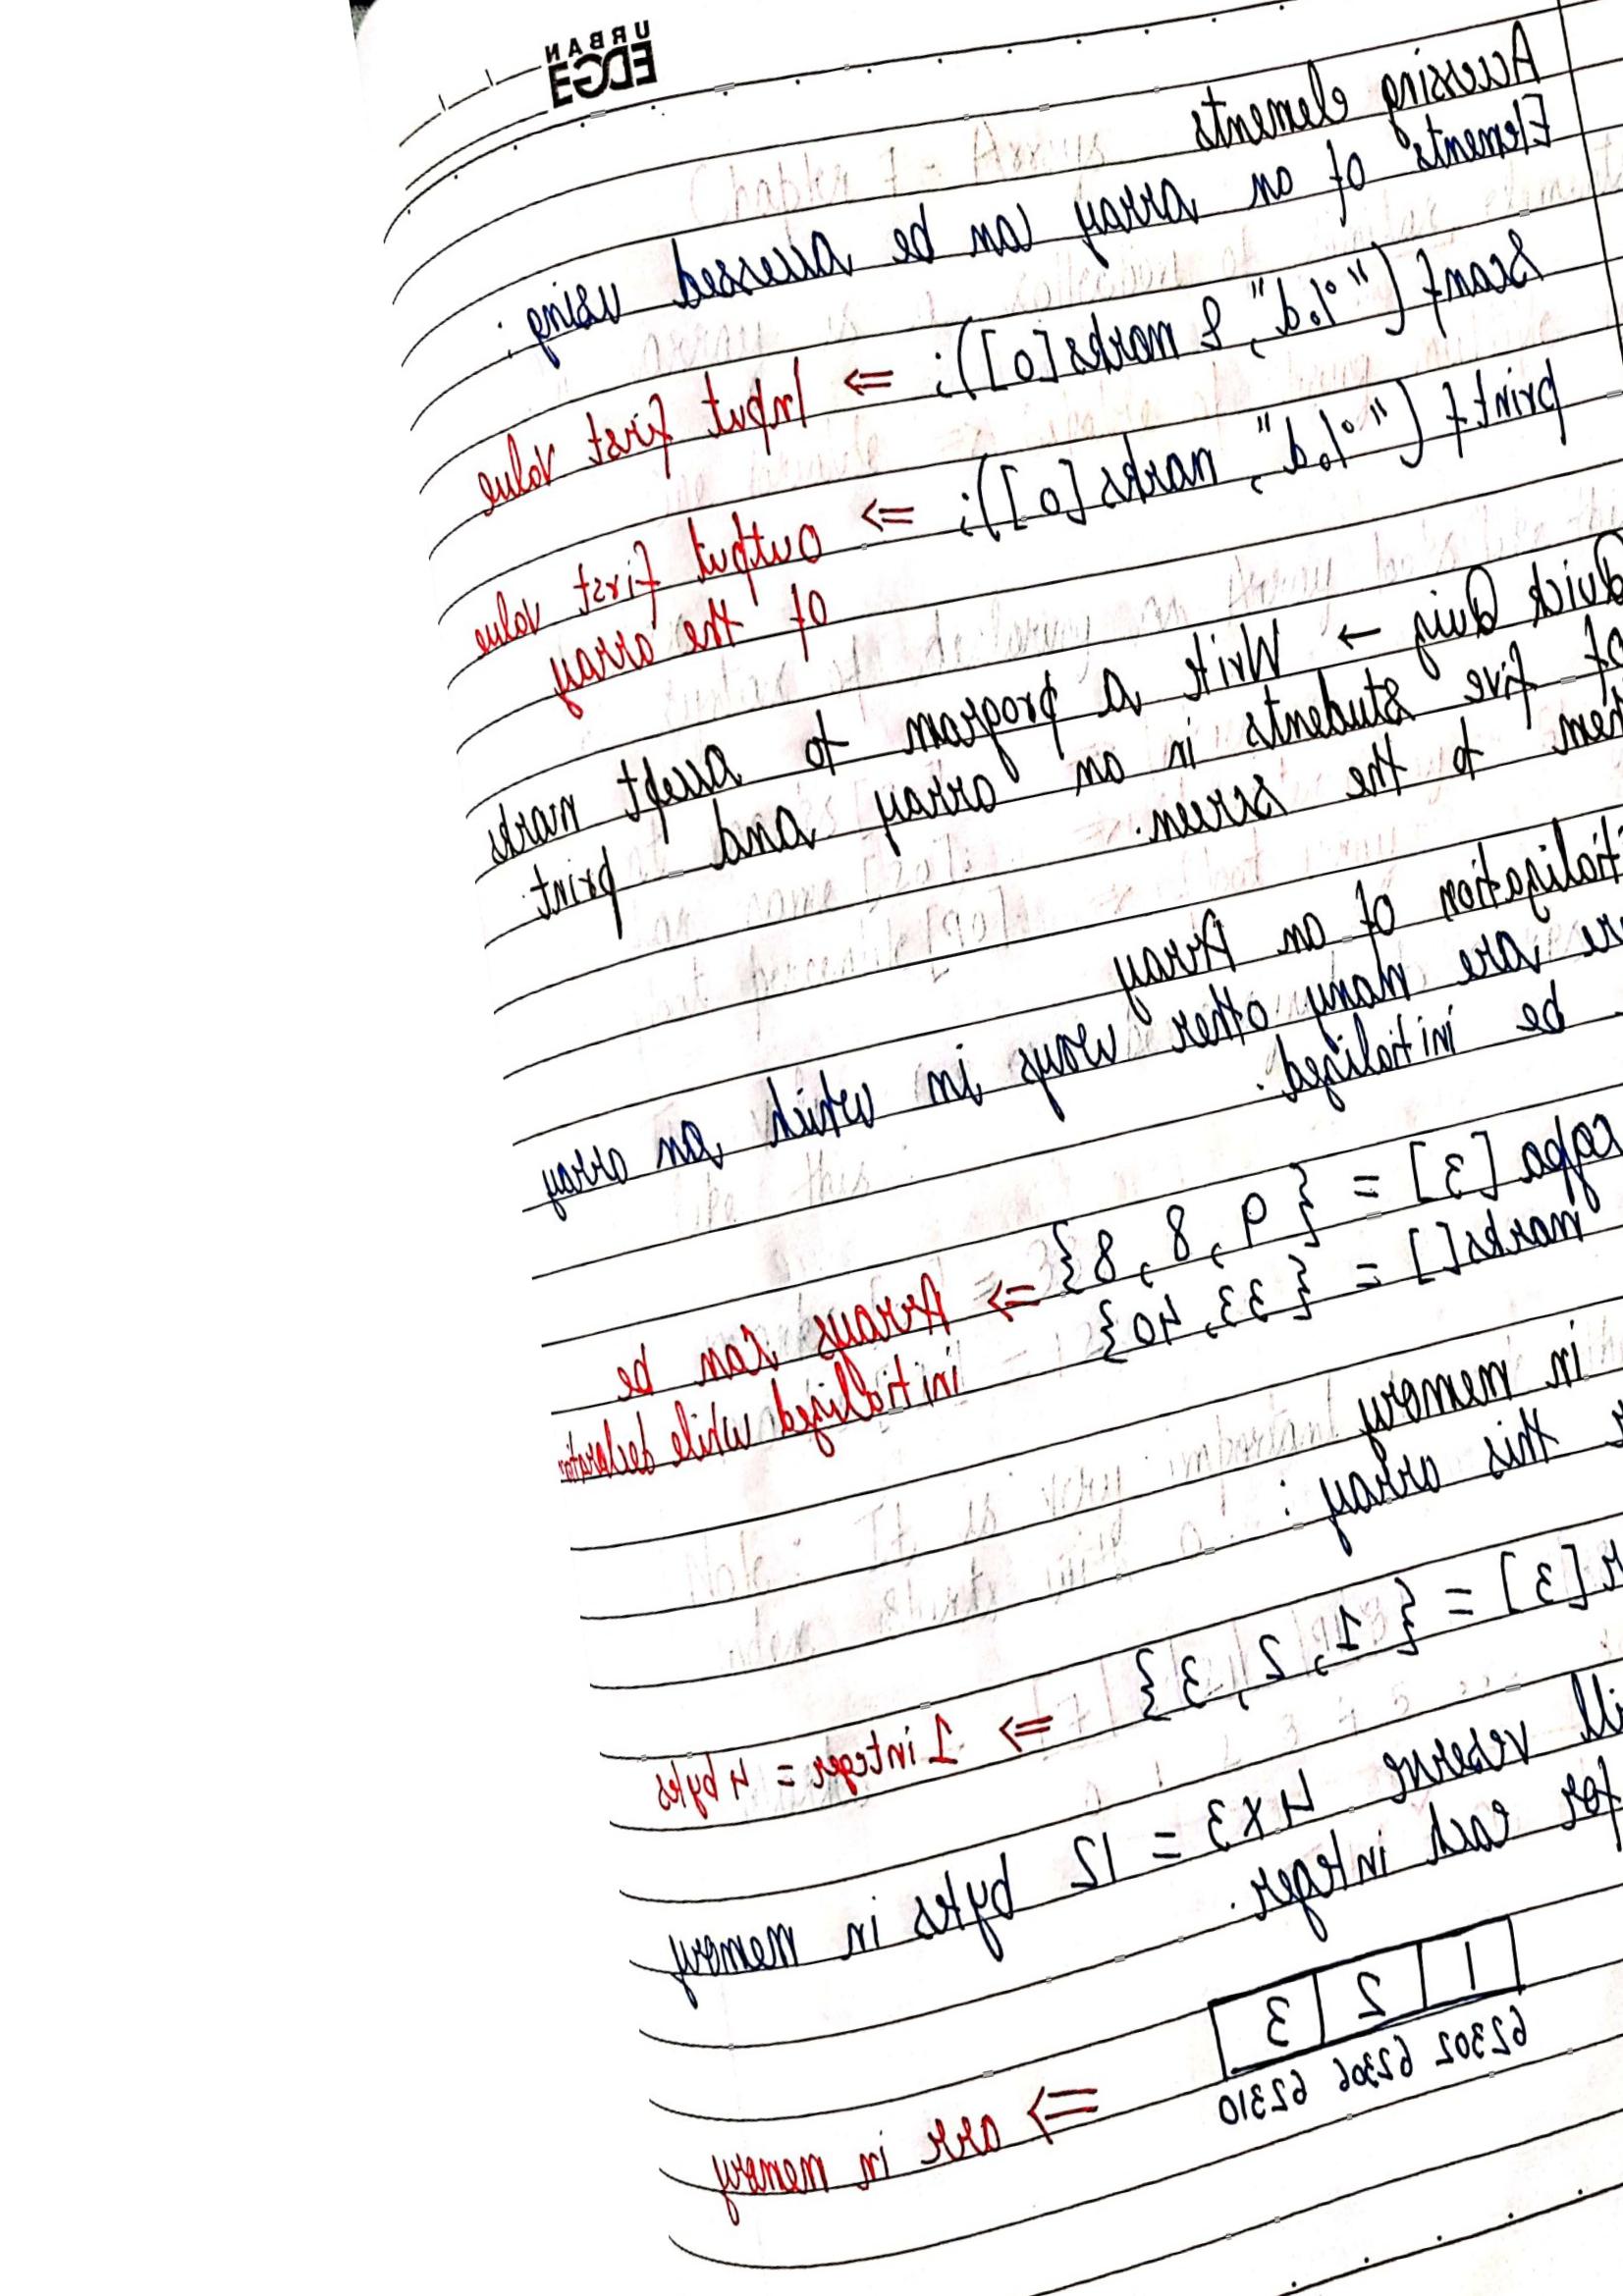 URBAN
EDGE
Accessing elements
Elements of an array can be accessed using :
scanf ("%d", & marks[0]); ⇒ Input first value
printf ("%d", marks [0]); ⇒ output first value
of the array
Quick Quiz → Writ a program to accept marks
of five students in an array and print
them to the screen.
of an Array
are many other ways in which an array
be initialized.
cgpa [3] = { 9, 8, 8} ⇒ Arrays can be
marks[] = { 33, 40} initialized while
in memory
this array :
[3] = { 1, 2, 3} ⇒ 1 integer = 4 bytes
reserve 4x3 = 12 bytes in memory
for each integer.
1 2 3
62302 62306 62310 ⇒ arr in memory